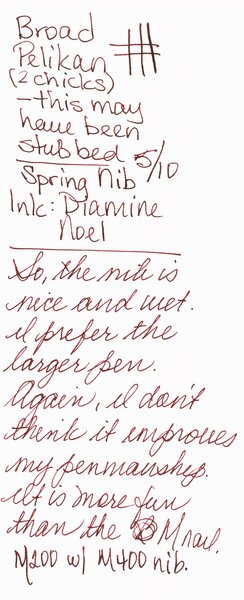 Broad
Pelikan
(2 chicks)
- this may
have been
stubbed 5/10
Spring Nib
Ink: Diamine
Noel
So, the nib is
nice and wet.
I prefer the
larger pen.
Again, I don't
think it improves
my penmanship.
It is more fun
than the M nail.
M200 w/ M400 nib.